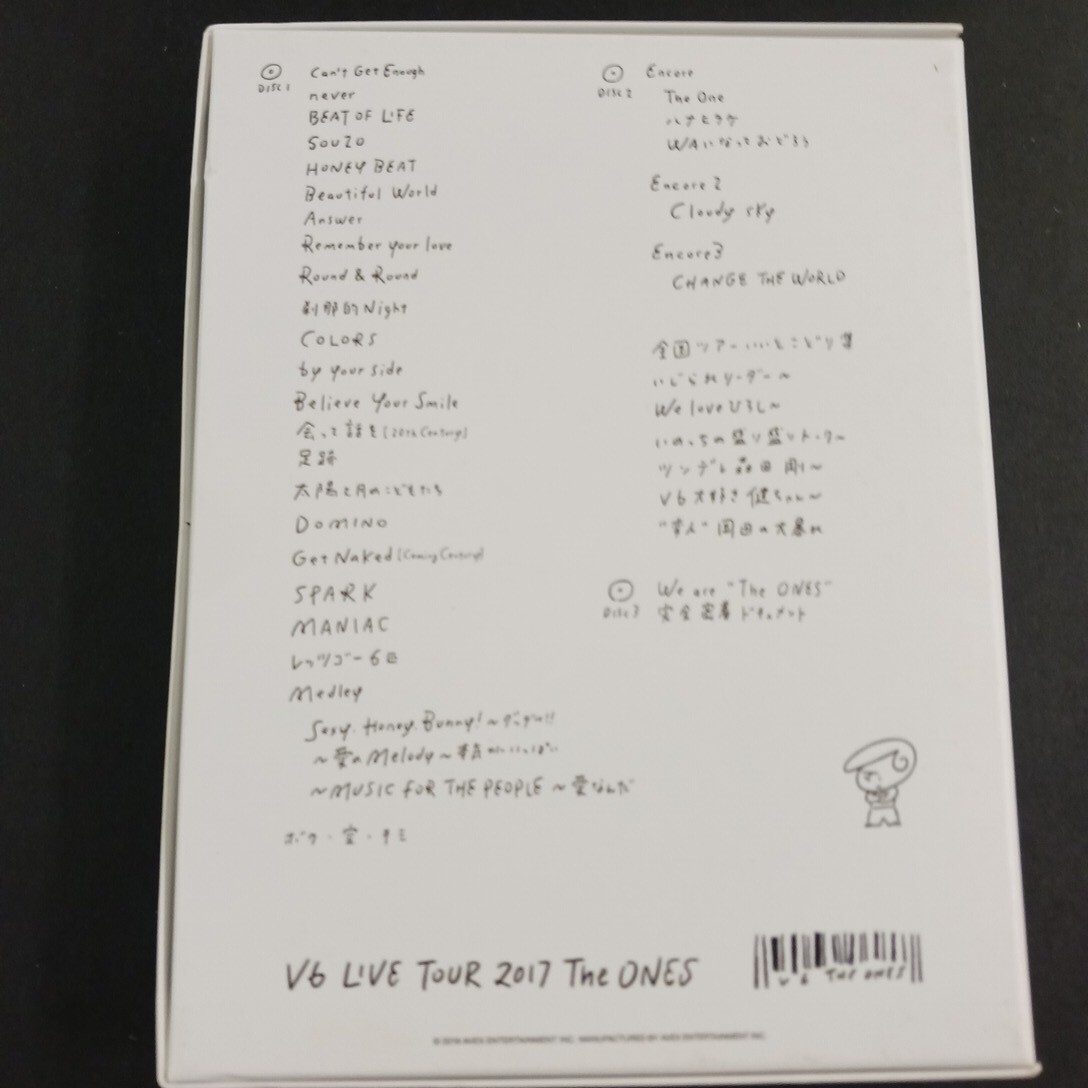 DISC 1
Can't Get Enough
never
BEAT OF LIFE
SOUZO
HONEY BEAT
Beautiful World
Answer
Remember your love
Round & Round
刹那的Night
COLORS
by your side
Believe Your Smile
会って話を(20th Century)
足跡
太陽と月のこどもたち
DOMINO
Get Naked (Coming Century)
SPARK
MANIAC
レッツゴー6匹
Medley
Sexy.Honey.Bunny!~ダーリン!!
~愛のMelody~本気がいっぱい
~MUSIC FOR THE PEOPLE ~愛なんだ
ボク・空・キミ
DISC 2
Encore
The One
ハナヒラケ
WAになっておどろう
Encore 2
Cloudy sky
Encore3
CHANGE THE WORLD
全国ツアーいいとこどり集
いじられリーダー~
We loveひろし~
いのっちの盛り盛りトーク~
ツンデレ森田剛~
V6大好き健ちゃん~
"変人"岡田の大暴れ
DISC 3
We are "The ONES"
完全密着ドキュメント
V6 LIVE TOUR 2017 The ONES
V6 THE ONES
AVEX ENTERTAINMENT INC. MANUFACTURED BY AVEX ENTERTAINMENT INC.